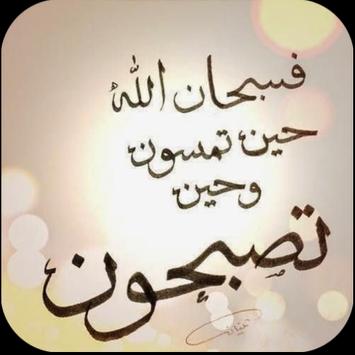 فسبحان اللهُ
حين تمسون
وحين
تصبحون